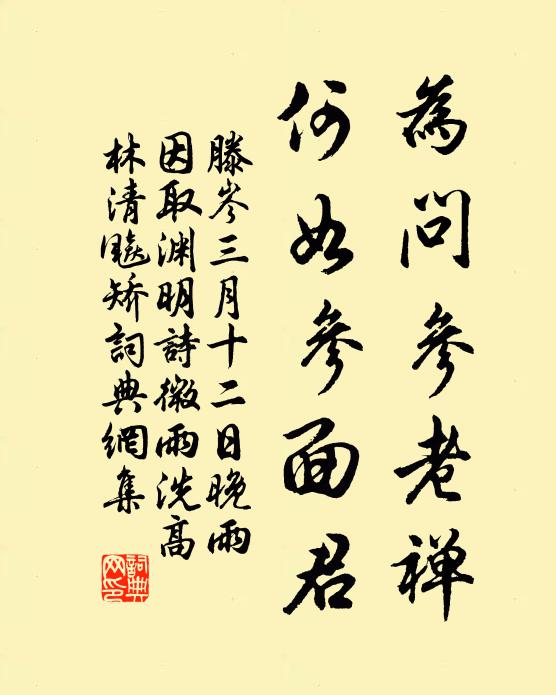 為問參老禪
何如參面君
滕岑三月十二日晚雨
因取淵明詩微雨洗高
林清飈矯詞典網集
詞典
网印